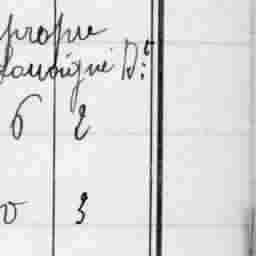 propre
D:t
6 2
0 3